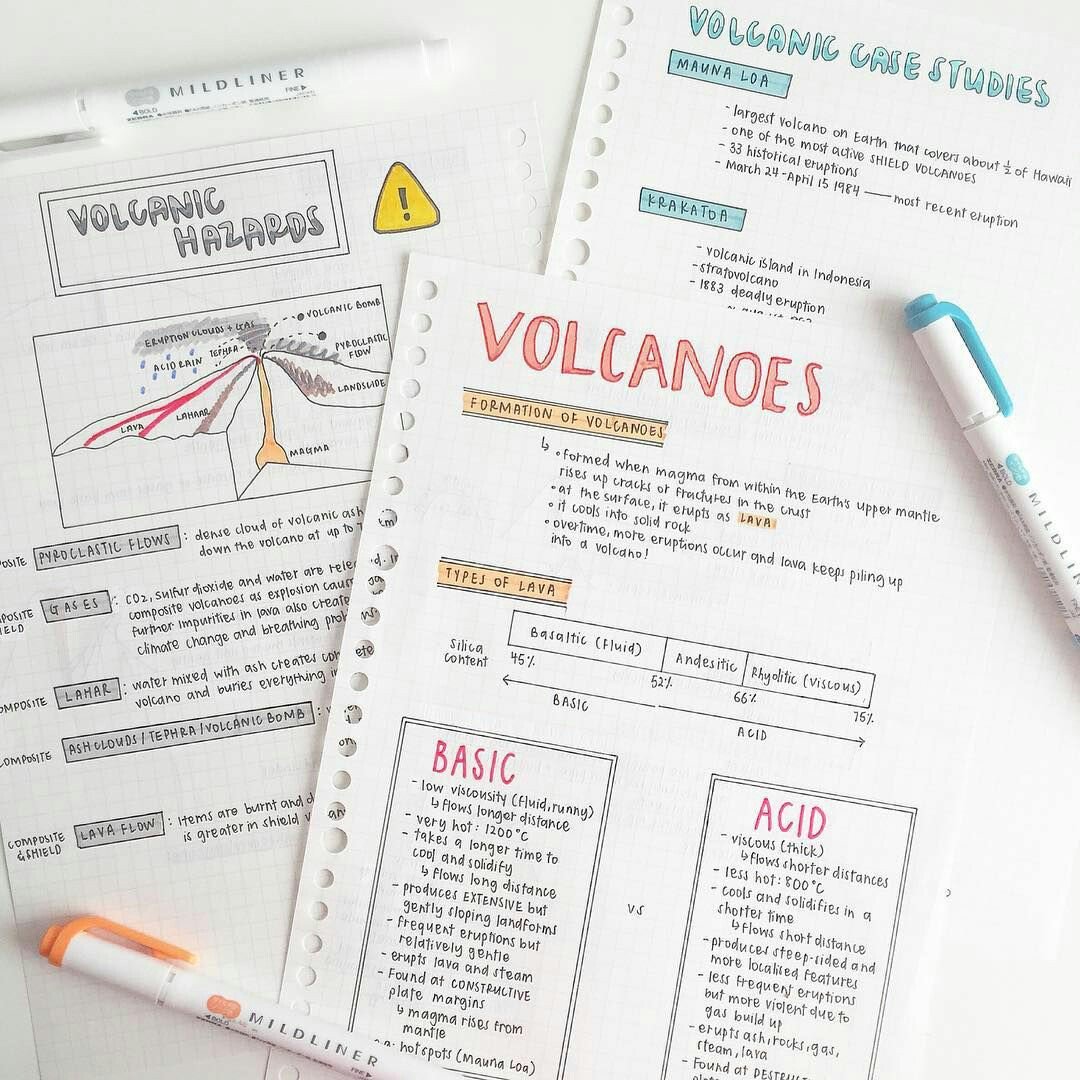 MILDLINER
BOLD
FINE
VOLCANIC
HAZARDS
!
ERUPTION CLOUDS + GAS
VOLCANIC BOMB
ACID RAIN
TEPHRA
PYROCLASTIC
FLOW
LANDSLIDE
LAVA
LAHAR
MAGMA
PYROCLASTIC FLOWS : dense cloud of volcanic ash
down the volcano at up to
GASES : CO2, sulfur dioxide and water are
composite volcanoes as explosion
further impurities in lava also create
climate change and breathing
LAHAR : water mixed with ash creates
volcano and buries everything
COMPOSITE ASH CLOUDS / TEPHRA / VOLCANIC BOMB :
COMPOSITE
& SHIELD
LAVA FLOW : Items are burnt and
is greater in shield
VOLCANIC CASE STUDIES
MAUNA LOA
- largest volcano on Earth that covers about ½ of Hawaii
- one of the most active SHIELD VOLCANOES
- 33 historical eruptions
- March 24 - April 15 1984 — most recent eruption
KRAKATOA
- volcanic island in Indonesia
- stratovolcano
- 1883 deadly eruption
VOLCANOES
FORMATION OF VOLCANOES
↳ • formed when magma from within the Earth's upper mantle
rises up cracks or fractures in the crust
• at the surface, it erupts as LAVA
• it cools into solid rock
• overtime, more eruptions occur and lava keeps piling up
into a volcano!
TYPES OF LAVA
Silica
content
Basaltic (Fluid) Andesitic Rhyolitic (Viscous)
45% 52% 66% 75%
BASIC
ACID
BASIC
- low viscousity (fluid, runny)
↳ flows longer distance
- very hot: 1200°C
- takes a longer time to
cool and solidify
↳ flows long distance
- produces EXTENSIVE but
gently sloping landforms
- frequent eruptions but
relatively gentle
- erupts lava and steam
- Found at CONSTRUCTIVE
plate margins
↳ magma rises from
mantle
hotspots (Mauna Loa)
vs
ACID
- viscous (thick)
↳ flows shorter distances
- less hot: 800°C
- cools and solidifies in a
shorter time
↳ flows short distance
- produces steep-sided and
more localised features
- less frequent eruptions
but more violent due to
gas build up
- erupts ash, rocks, gas,
steam, lava
- Found at
MILDLINER
BOLD
MILDLINER